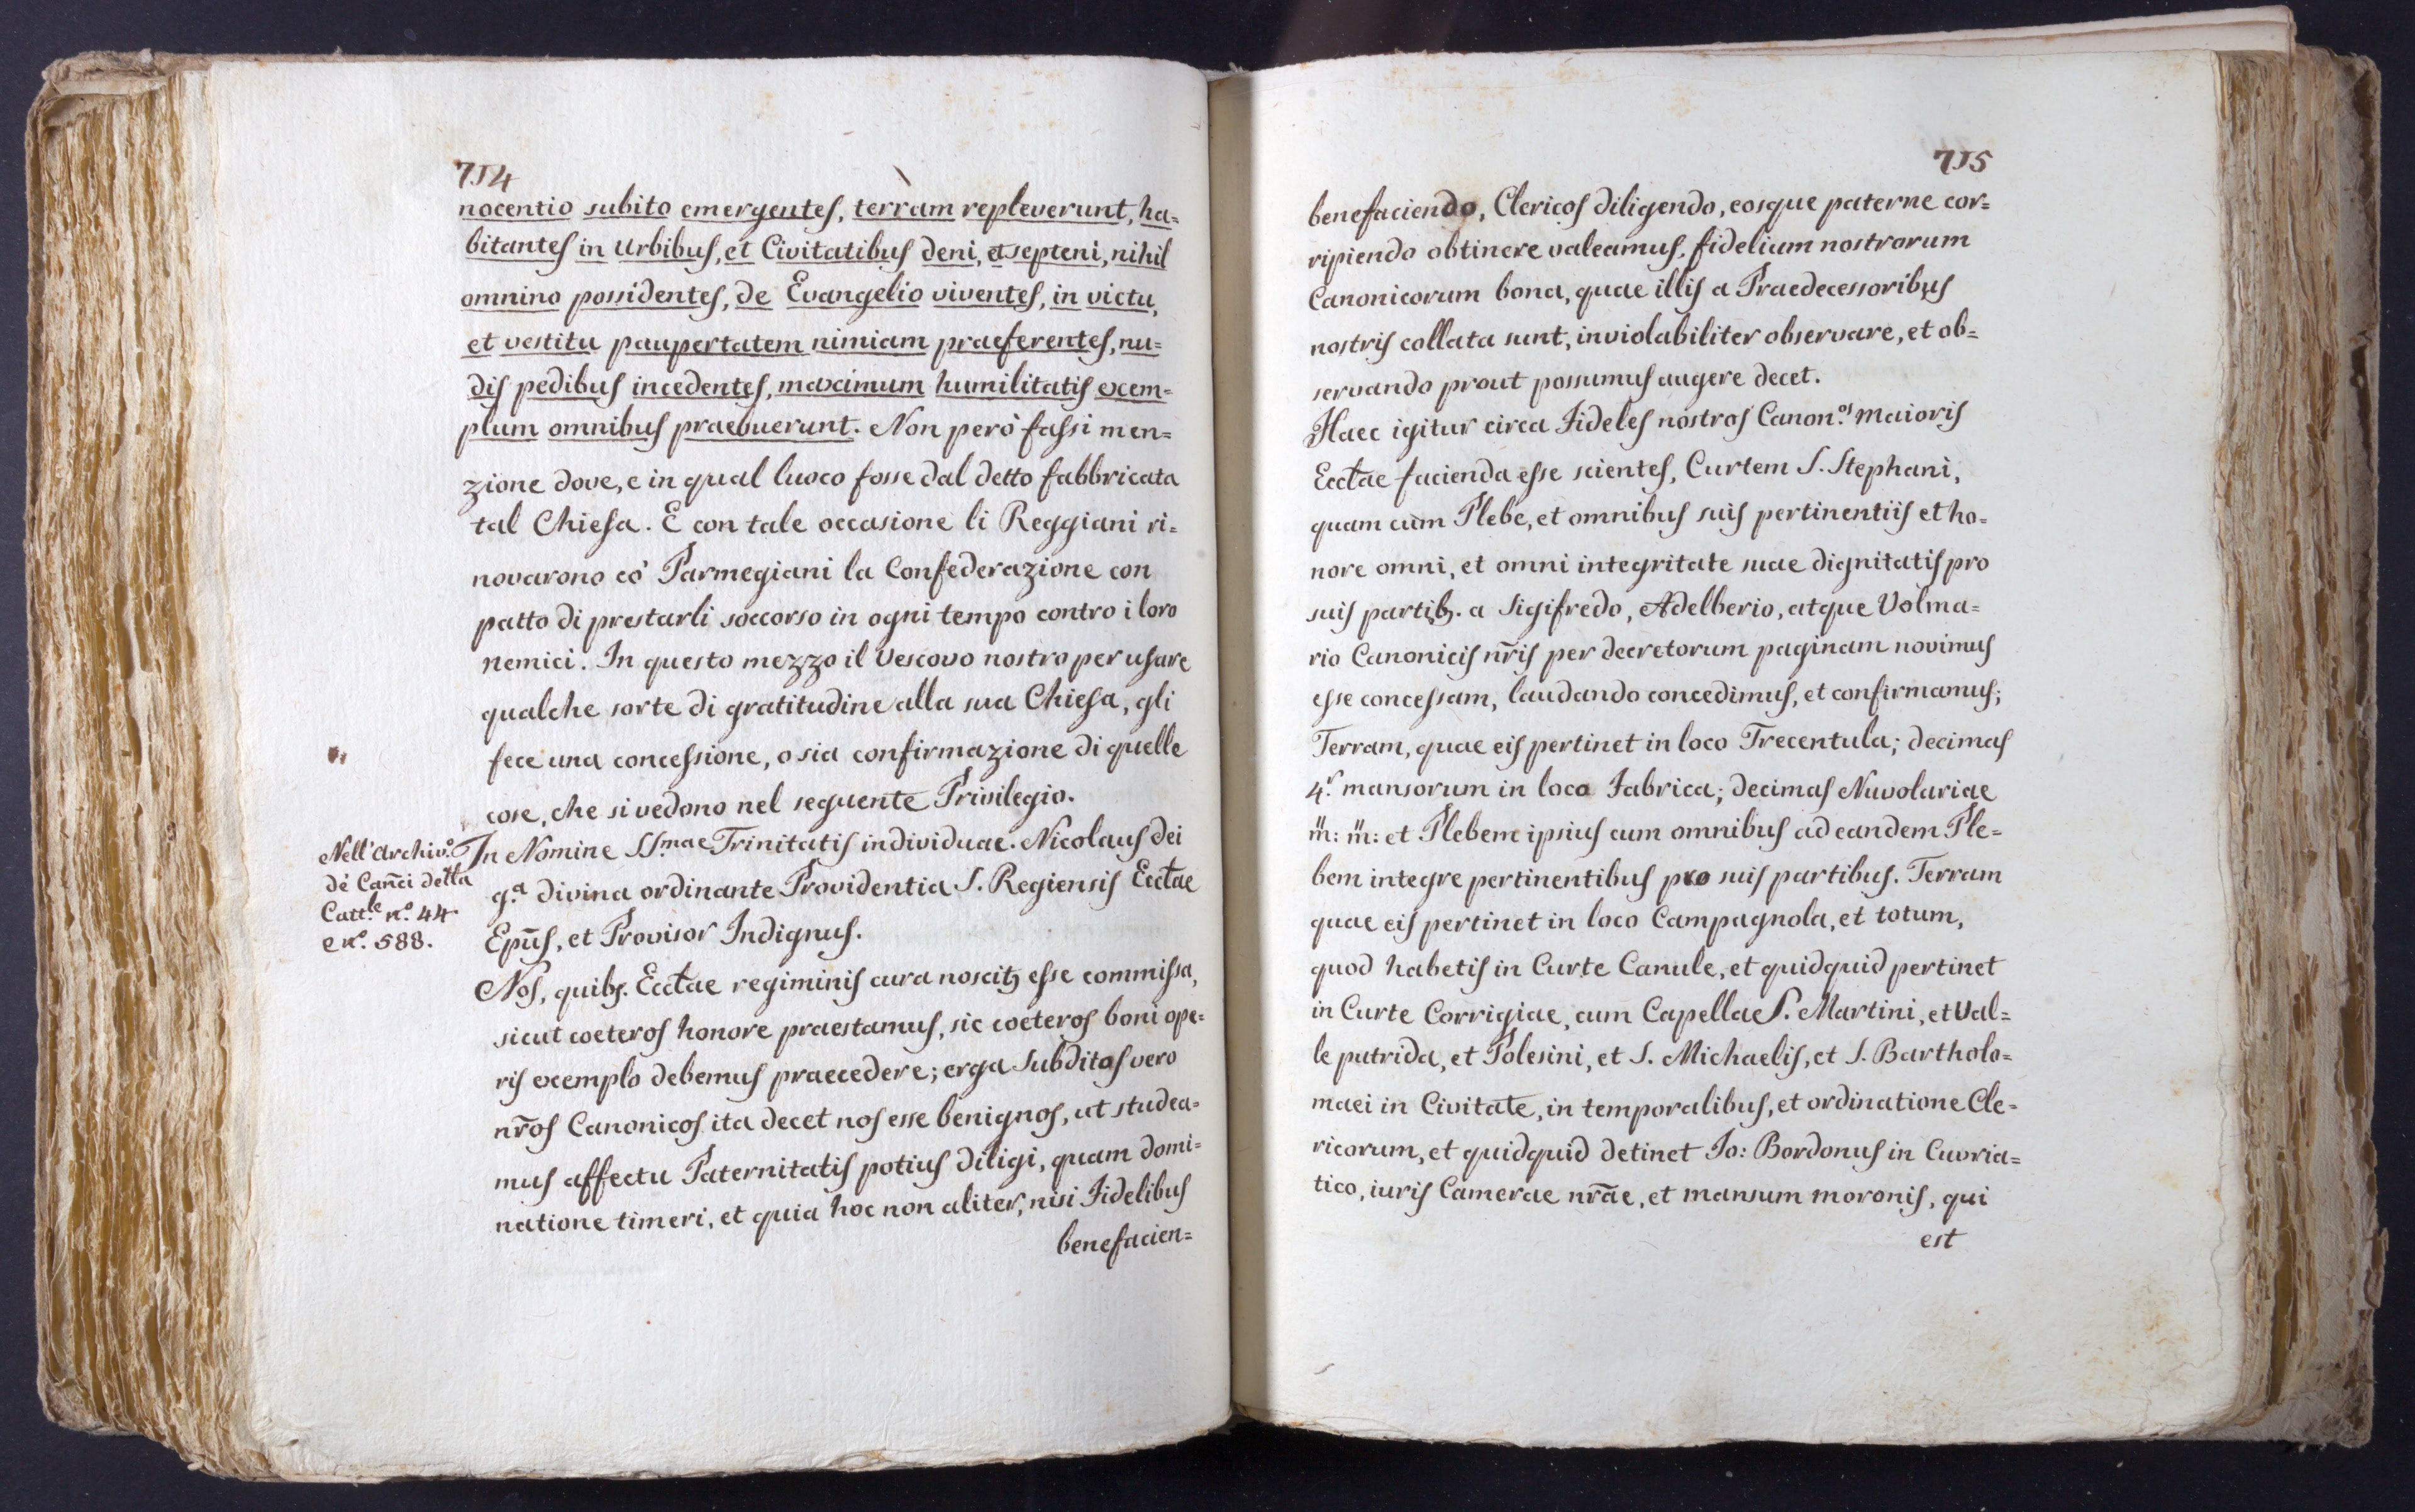 714
nocentio subito emergentes, terram repleverunt, ha=
bitantes in urbibus, et Civitatibus deni, et septeni, nihil
omnino possidentes, de Evangelio viventes, in victu,
et vestitu paupertatem nimiam praeferentes, nu=
dis pedibus incedentes, maximum humilitatis exem=
plum omnibus praebuerunt. Non però fassi men=
zione dove, e in qual luoco fosse dal detto fabbricata
tal Chiesa. E con tale occasione li Reggiani ri=
novarono cò Parmegiani la Confederazione con
patto di prestarli soccorso in ogni tempo contro i loro
nemici. In questo mezzo il Vescovo nostro per usare
qualche sorte di gratitudine alla sua Chiesa, gli
fece una concessione, o sia confirmazione di quelle
cose, che si vedono nel seguente Privilegio.
Nell'Archiv.º
dè Cañci della
Catt.le n.º 44.
e n.º 588.
In Nomine SS.mae Trinitatis individuae. Nicolaus Dei
g.a divina ordinante Providentia S. Regiensis Ecctae
Epũs, et Provisor Indignus.
Nos, quibꝫ. Ecctae regiminis cura noscitꝫ esse commissa,
sicut coeteros honore praestamus, sic coeteros boni ope=
ris exemplo debemus praecedere; erga Subditos vero
nr̃os Canonicos ita decet nos esse benignos, ut studea=
mus affectu Paternitatis potius diligi, quam domi=
natione timeri, et quia hoc non aliter, nisi Fidelibus
benefacien=
715
benefaciendo, Clericos diligendo, eosque paterne cor=
ripiendo obtinere valeamus, fidelium nostrorum
Canonicorum bona, quae illis a Praedecessoribus
nostris collata sunt, inviolabiliter observare, et ob=
servando prout possumus augere decet.
Haec igitur circa Fideles nostros Canon.os maioris
Ecctae facienda esse scientes, Curtem S. Stephani,
quam cum Plebe, et omnibus suis pertinentiis et ho=
nore omni, et omni integritate suae dignitatis pro
suis partibꝫ. a Sigifredo, Adelberio, atque Volma=
rio Canonicis nr̃is per decretorum paginam novimus
esse concessam, laudando concedimus, et confirmamus;
Terram, quae eis pertinet in loco Trecentula; decimas
4.r mansorum in loco Fabrica; decimas Nuvolariae
m̃: m̃: et Plebem ipsius cum omnibus ad eandem Ple=
bem integre pertinentibus pro suis partibus. Terram
quae eis pertinet in loco Campagnola, et totum,
quod habetis in Curte Canule, et quidquid pertinet
in Curte Corrigiae, cum Capellae S. Martini, et Val=
le putrida, et Polesini, et S. Michaelis, et S. Bartholo=
maei in Civitate, in temporalibus, et ordinatione Cle=
ricorum, et quidquid detinet Io: Bordonus in Cuvria=
tico, iuris Camerae nr̃ae, et mansum moronis, qui
est